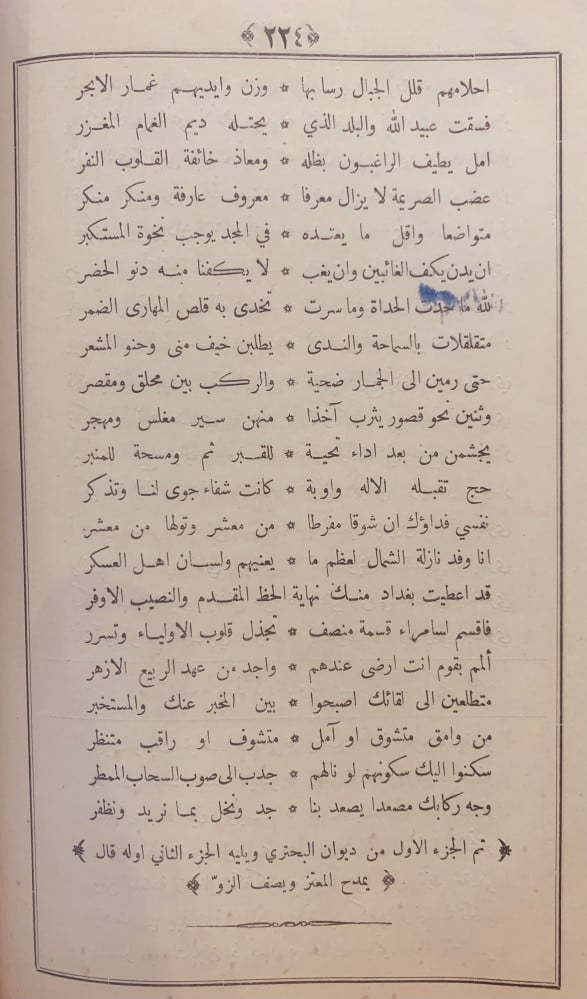 ﴿٢٢٤﴾
احلامهم قلل الجبال رسا بها * وزن وايديهم غمار الابحر
فسقت عبيد الله والبلد الذي * يحتله ديم الغمام المغزر
امل يطيف الراغبون بظله * ومعاذ خائفة القلوب النفر
عضب الصريمة لا يزال معرفا * معروف عارفة ومنكر منكر
متواضعا واقل ما يعتده * في المجد يوجب نخوة المستكبر
ان يدن يكف الغائبين وان يغب * لا يكفنا منه دنو الحضر
لله ما حدت الحداة وما سرت * تخدى به قلص المهارى الضمر
متقلقلات بالسماحة والندى * يطلبن خيف منى وحنو المشعر
حتى رمين الى الجمار ضحية * والركب بين محلق ومقصر
وثنين نحو قصور يثرب آخذا * منهن سير مغلس ومهجر
يجشمن من بعد اداء تحية * للقبر ثم ومسحة للمنبر
حج تقبله الاله واوبة * كانت شفاء جوى لنا وتذكر
نفسي فداؤك ان شوقا مفرطا * من معشر وتولها من معشر
انا وفد نازلة الشمال لعظم ما * يعنيهم ولسان اهل العسكر
قد اعطيت بغداد منك نهاية الحظ المقدم والنصيب الاوفر
فاقسم لسامراء قسمة منصف * تجذل قلوب الاولياء وتسرر
ألمم بقوم انت ارضى عندهم * واجد من عهد الربيع الازهر
متطلعين الى لقائك اصبحوا * بين المخبر عنك والمستخبر
من وامق متشوق او آمل * متشوف او راقب متنظر
سكنوا اليك سكونهم لو نالهم * جدب الى صوب السحاب الممطر
وجه ركابك مصعدا يصعد بنا * جد ونخل بما نريد ونظفر
﴿ تم الجزء الاول من ديوان البحتري ويليه الجزء الثاني اوله قال ﴾
﴿ يمدح المعتز ويصف الزوّ ﴾